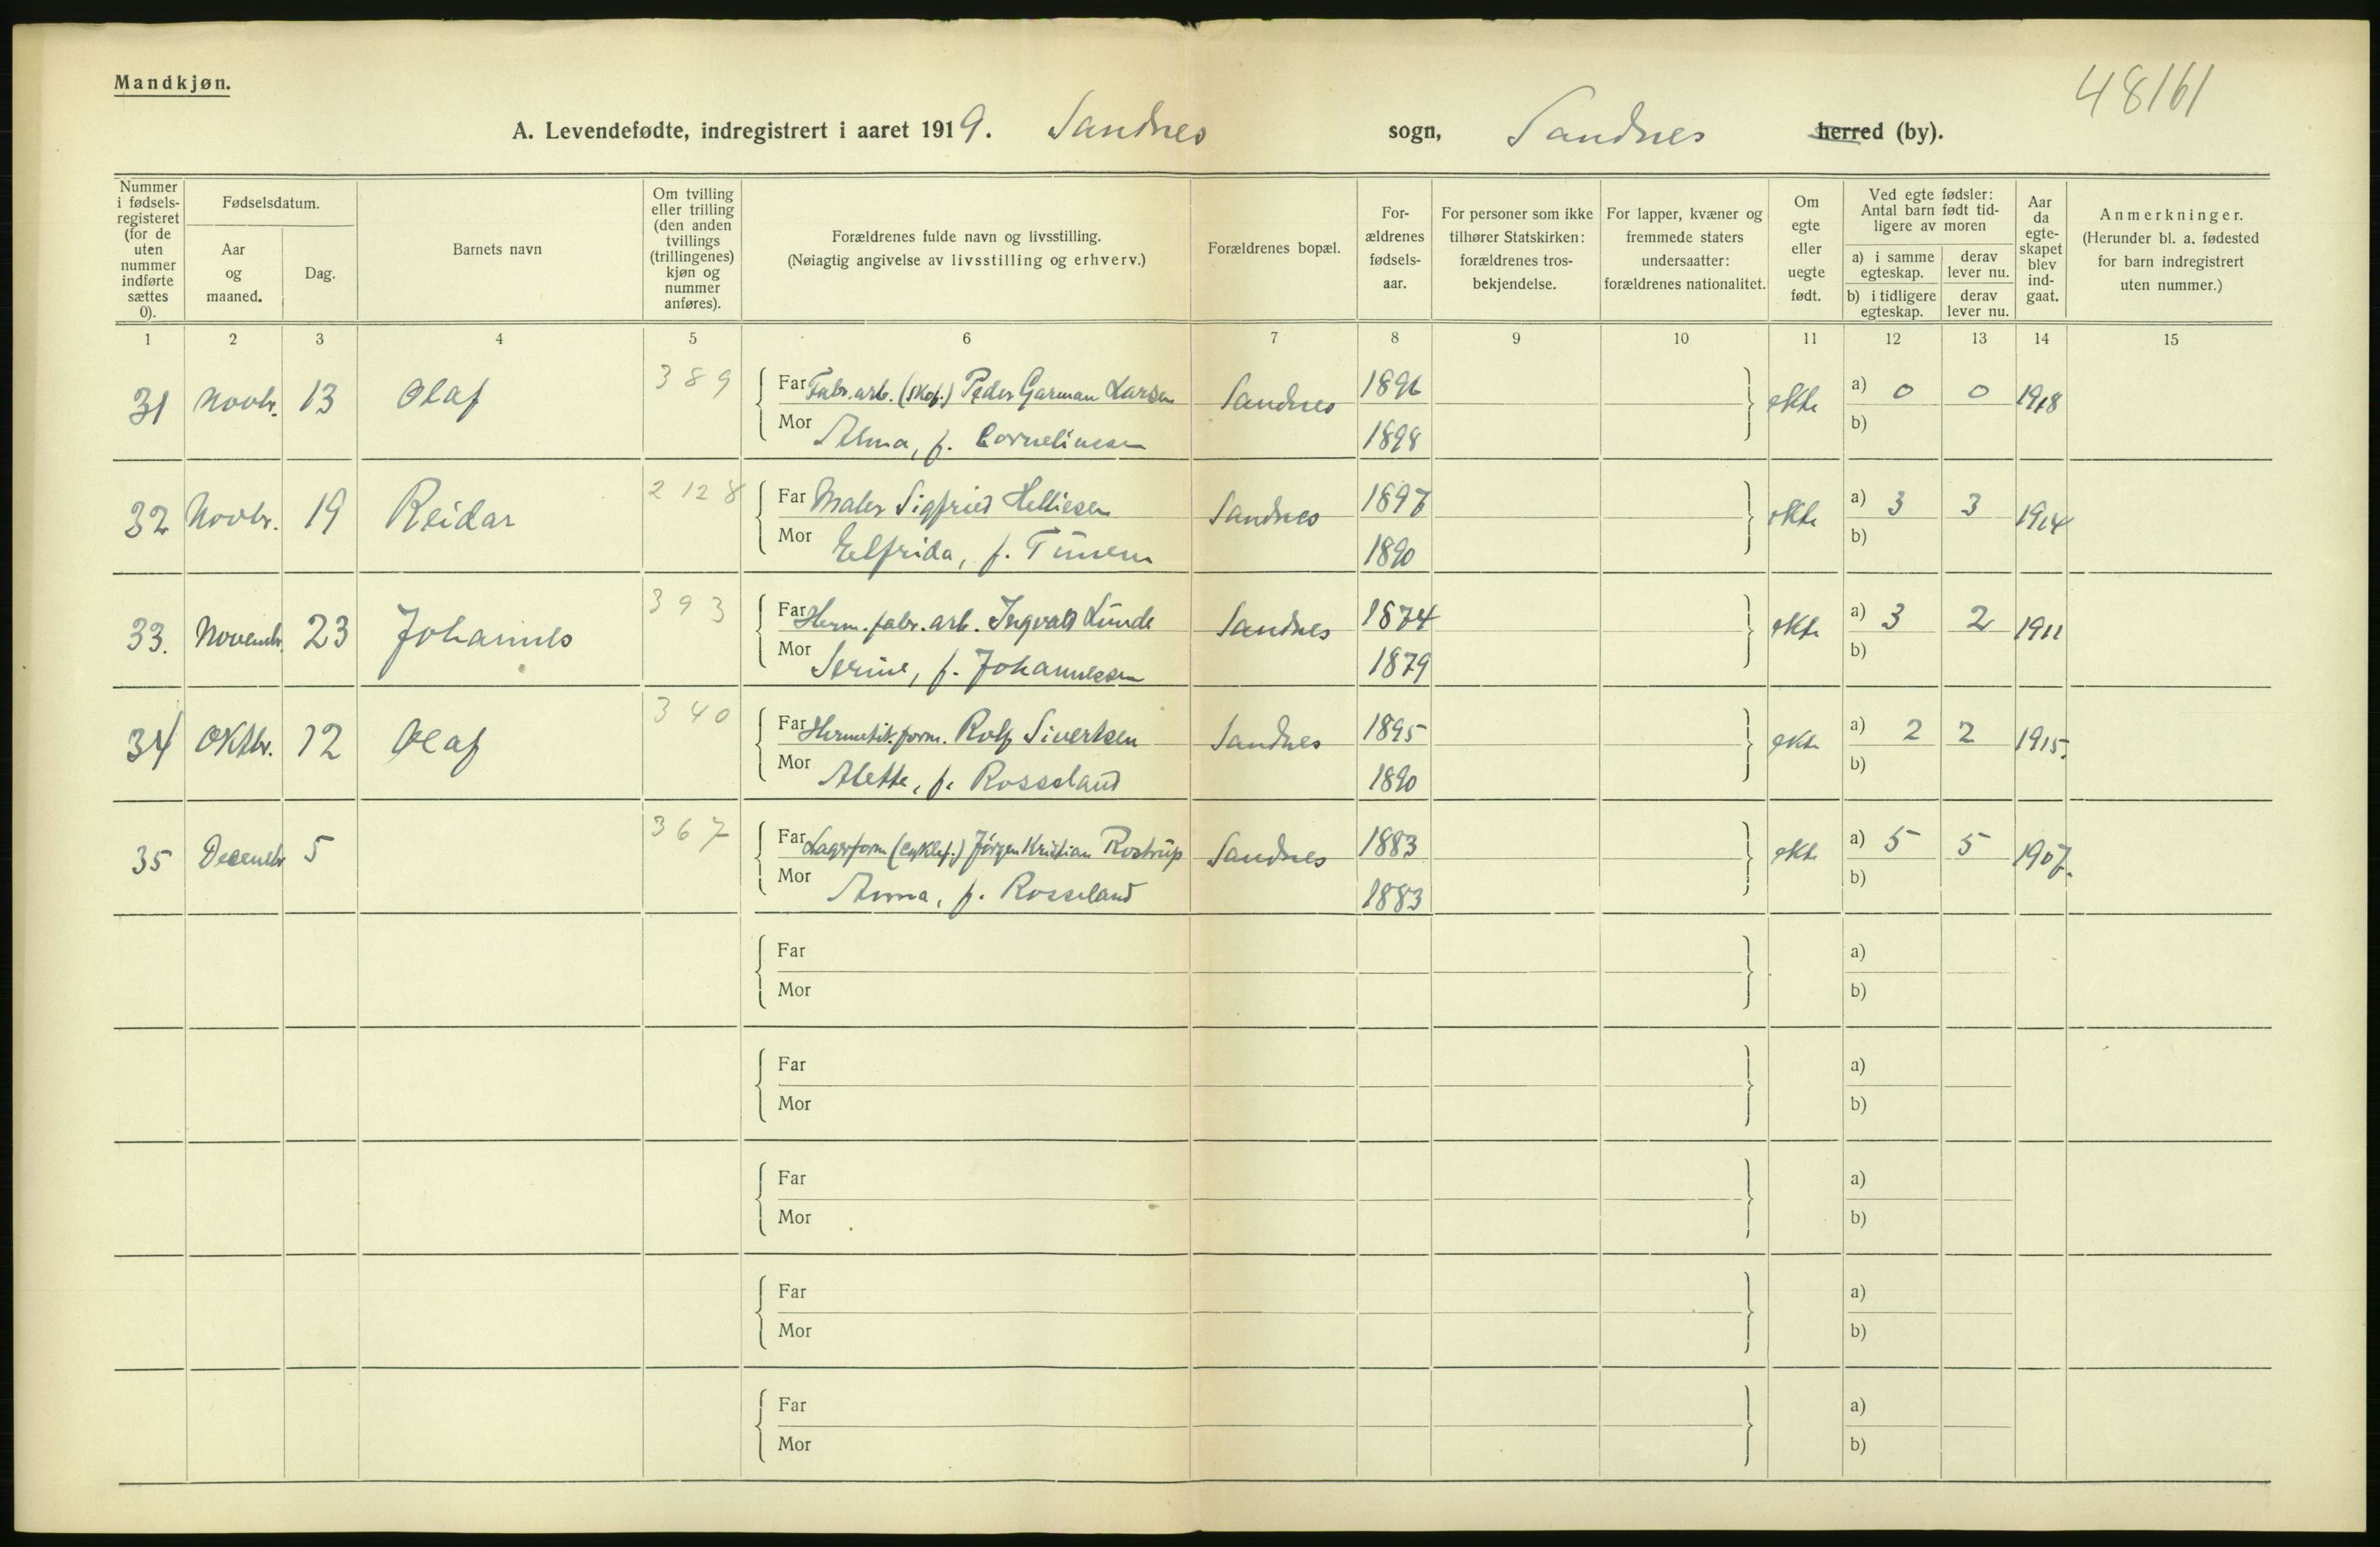 Mandkjøn.
48161
A. Levendefødte, indregistrert i aaret 1919. Sandnes sogn, Sandnes herred (by).
Nummer i fødsels-registeret (for de uten nummer indførte sættes 0).
Fødselsdatum.
Aar og maaned.
Dag.
Barnets navn
Om tvilling eller trilling (den anden tvillings (trillingenes) kjøn og nummer anføres).
Forældrenes fulde navn og livsstilling.
(Nøiagtig angivelse av livsstilling og erhverv.)
Forældrenes bopæl.
For-ældrenes fødsels-aar.
For personer som ikke tilhører Statskirken: forældrenes tros-bekjendelse.
For lapper, kvæner og fremmede staters undersaatter: forældrenes nationalitet.
Om egte eller uegte født.
Ved egte fødsler: Antal barn født tid-ligere av moren
a) i samme egteskap.
derav lever nu.
b) i tidligere egteskap.
derav lever nu.
Aar da egte-skapet blev ind-gaat.
Anmerkninger.
(Herunder bl. a. fødested for barn indregistrert uten nummer.)
1 2 3 4 5 6 7 8 9 10 11 12 13 14 15
31 Novbr. 13 Olaf 389 Far Fabr. arb. (skof.) Peder Garman Larsen Sandnes 1896 ekte a) 0 0 1918
Mor Alma, f. Corneliussen 1898 b)
32 Novbr. 19 Reidar 2 128 Far Maler Sigfried Helliesen Sandnes 1897 ekte a) 3 3 1914
Mor Elfrida, f. 1890 b)
33. Novembr. 23 Johannes 393 Far Herm. fabr. arb. Ingvald Lunde Sandnes 1874 ekte a) 3 2 1911
Mor Serine, f. Johannessen 1879 b)
34 Oktbr. 12 Olaf 340 Far Hermetik. form. Rolf Sivertsen Sandnes 1895 ekte a) 2 2 1915.
Mor Alette, f. Rosseland 1890 b)
35 Decembr 5 367 Far Lagerform (cyklef.) Jörgen Kristian Rostrup Sandnes 1883 ekte a) 5 5 1907.
Mor Anna, f. Rosseland 1883 b)
Far a)
Mor b)
Far a)
Mor b)
Far a)
Mor b)
Far a)
Mor b)
Far a)
Mor b)